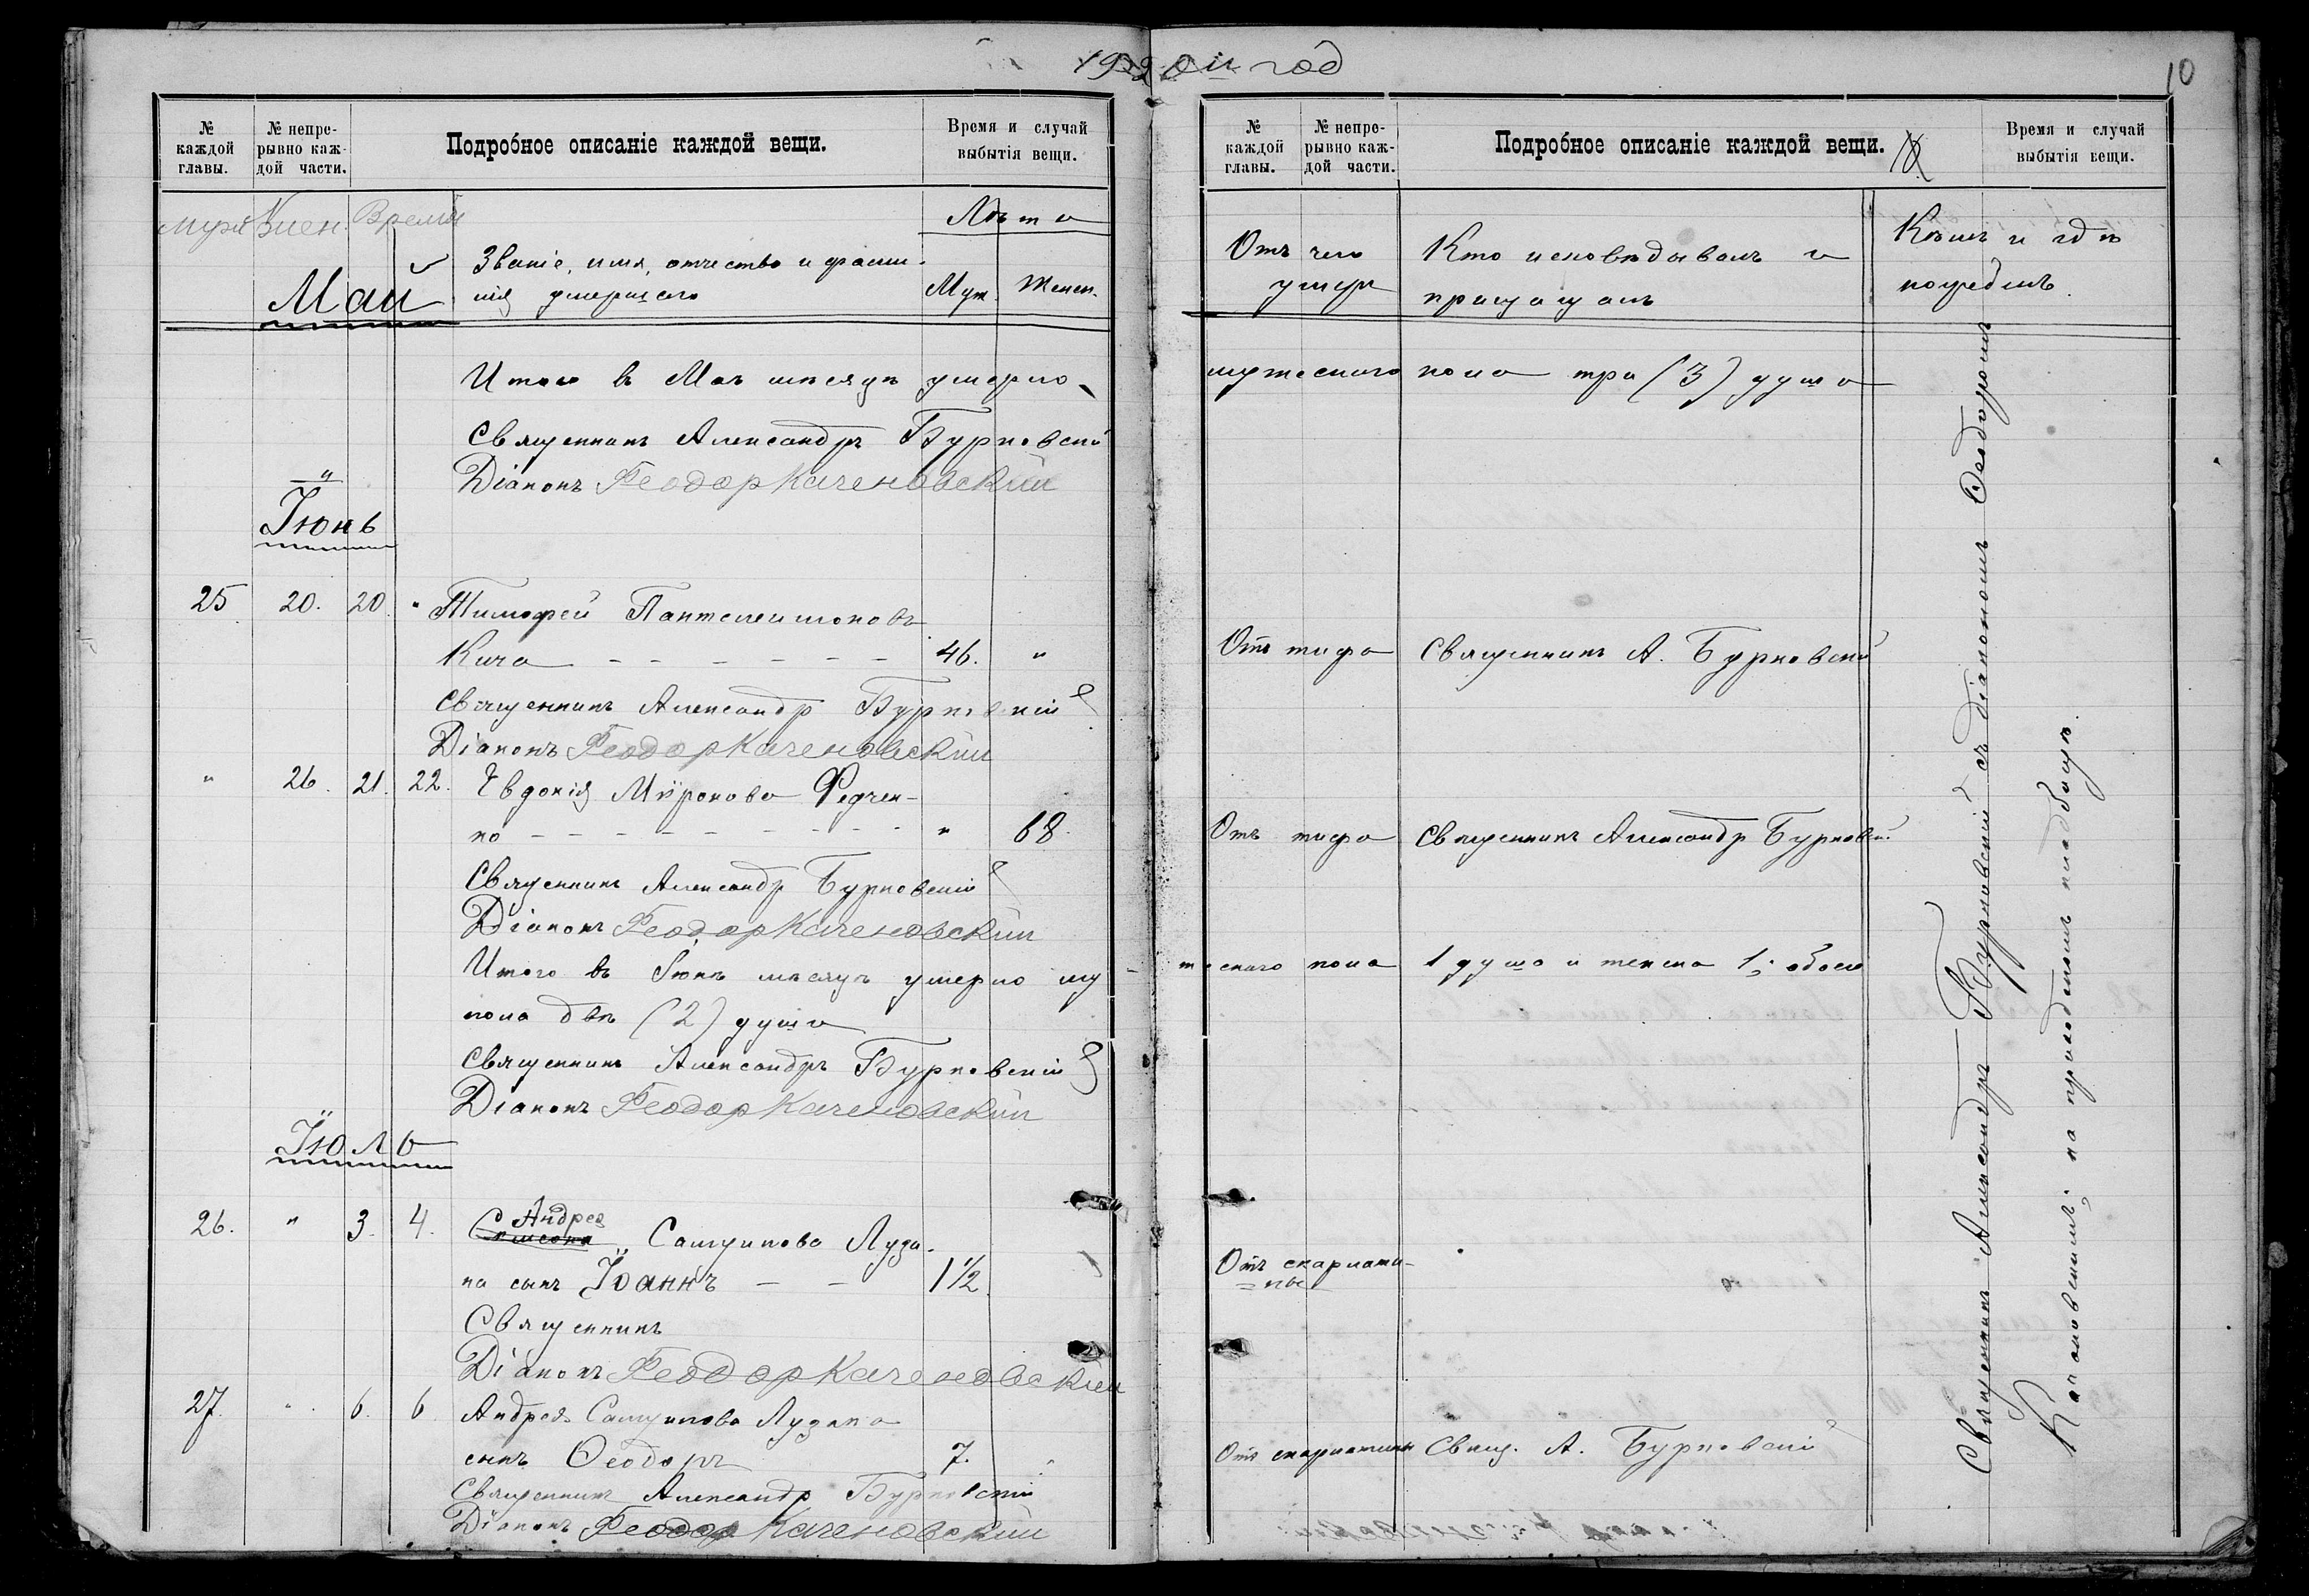 1920 й год
10
№ каждой главы.
№ непрерывно каждой части.
Подробное описаніе каждой вещи.
Время и случай выбытія вещи.
Муж
Жен.
Время
Лѣта
Май
Званіе, имя, отчество и фами-
лія умершаго
Муж.
Женск.
Итого въ Маѣ мѣсяцѣ умерло
Священникъ Александръ Бурковскій
Діаконъ Феодор Каченовский
Іюнь
25 20. 20 " Тимофей Пантелеимоновъ
Кича 46. "
Священникъ Александр Бурковскій
Діаконъ Феодор Каченовский
" 26. 21. 22. Евдокія Миронова Федчен-
ко " 68.
Священникъ Александр Бурковскій
Діаконъ Феодор Каченовский
Итого въ Іюнѣ мѣсяцѣ умерло му-
пола двѣ (2) душы
Священникъ Александръ Бурковскій
Діаконъ Феодор Каченовский
Іюль
26. " 3. 4. Андрея Самуилова Лузa-
на сынъ Іоаннъ 1½
Священникъ
Діаконъ Феодор Каченовский
27. " 6. 6 Андрея Самуилова Лузана
сынъ Ѳеодоръ 7.
Священникъ Александр Бурковскій
Діаконъ Феодор Каченовский
№ каждой главы.
№ непрерывно каждой части.
Подробное описаніе каждой вещи.
Время и случай выбытія вещи.
Отъ чего
умеръ
Кто исповѣдывалъ и
пріущалъ
Кѣмъ и гдѣ
погребенъ
мужескаго пола три (3) душы
Отъ тифа Священникъ А. Бурковскій
Отъ тифа Священникъ Александр Бурковскій
жескаго пола 1 душа и женска 1; обоего
Отъ скарлати-
ны
Отъ скарлатины Свящ. А. Бурковскій
Священникъ Александръ Бурковскій съ діакономъ Ѳеодоромъ
на приходскомъ кладбищѣ.